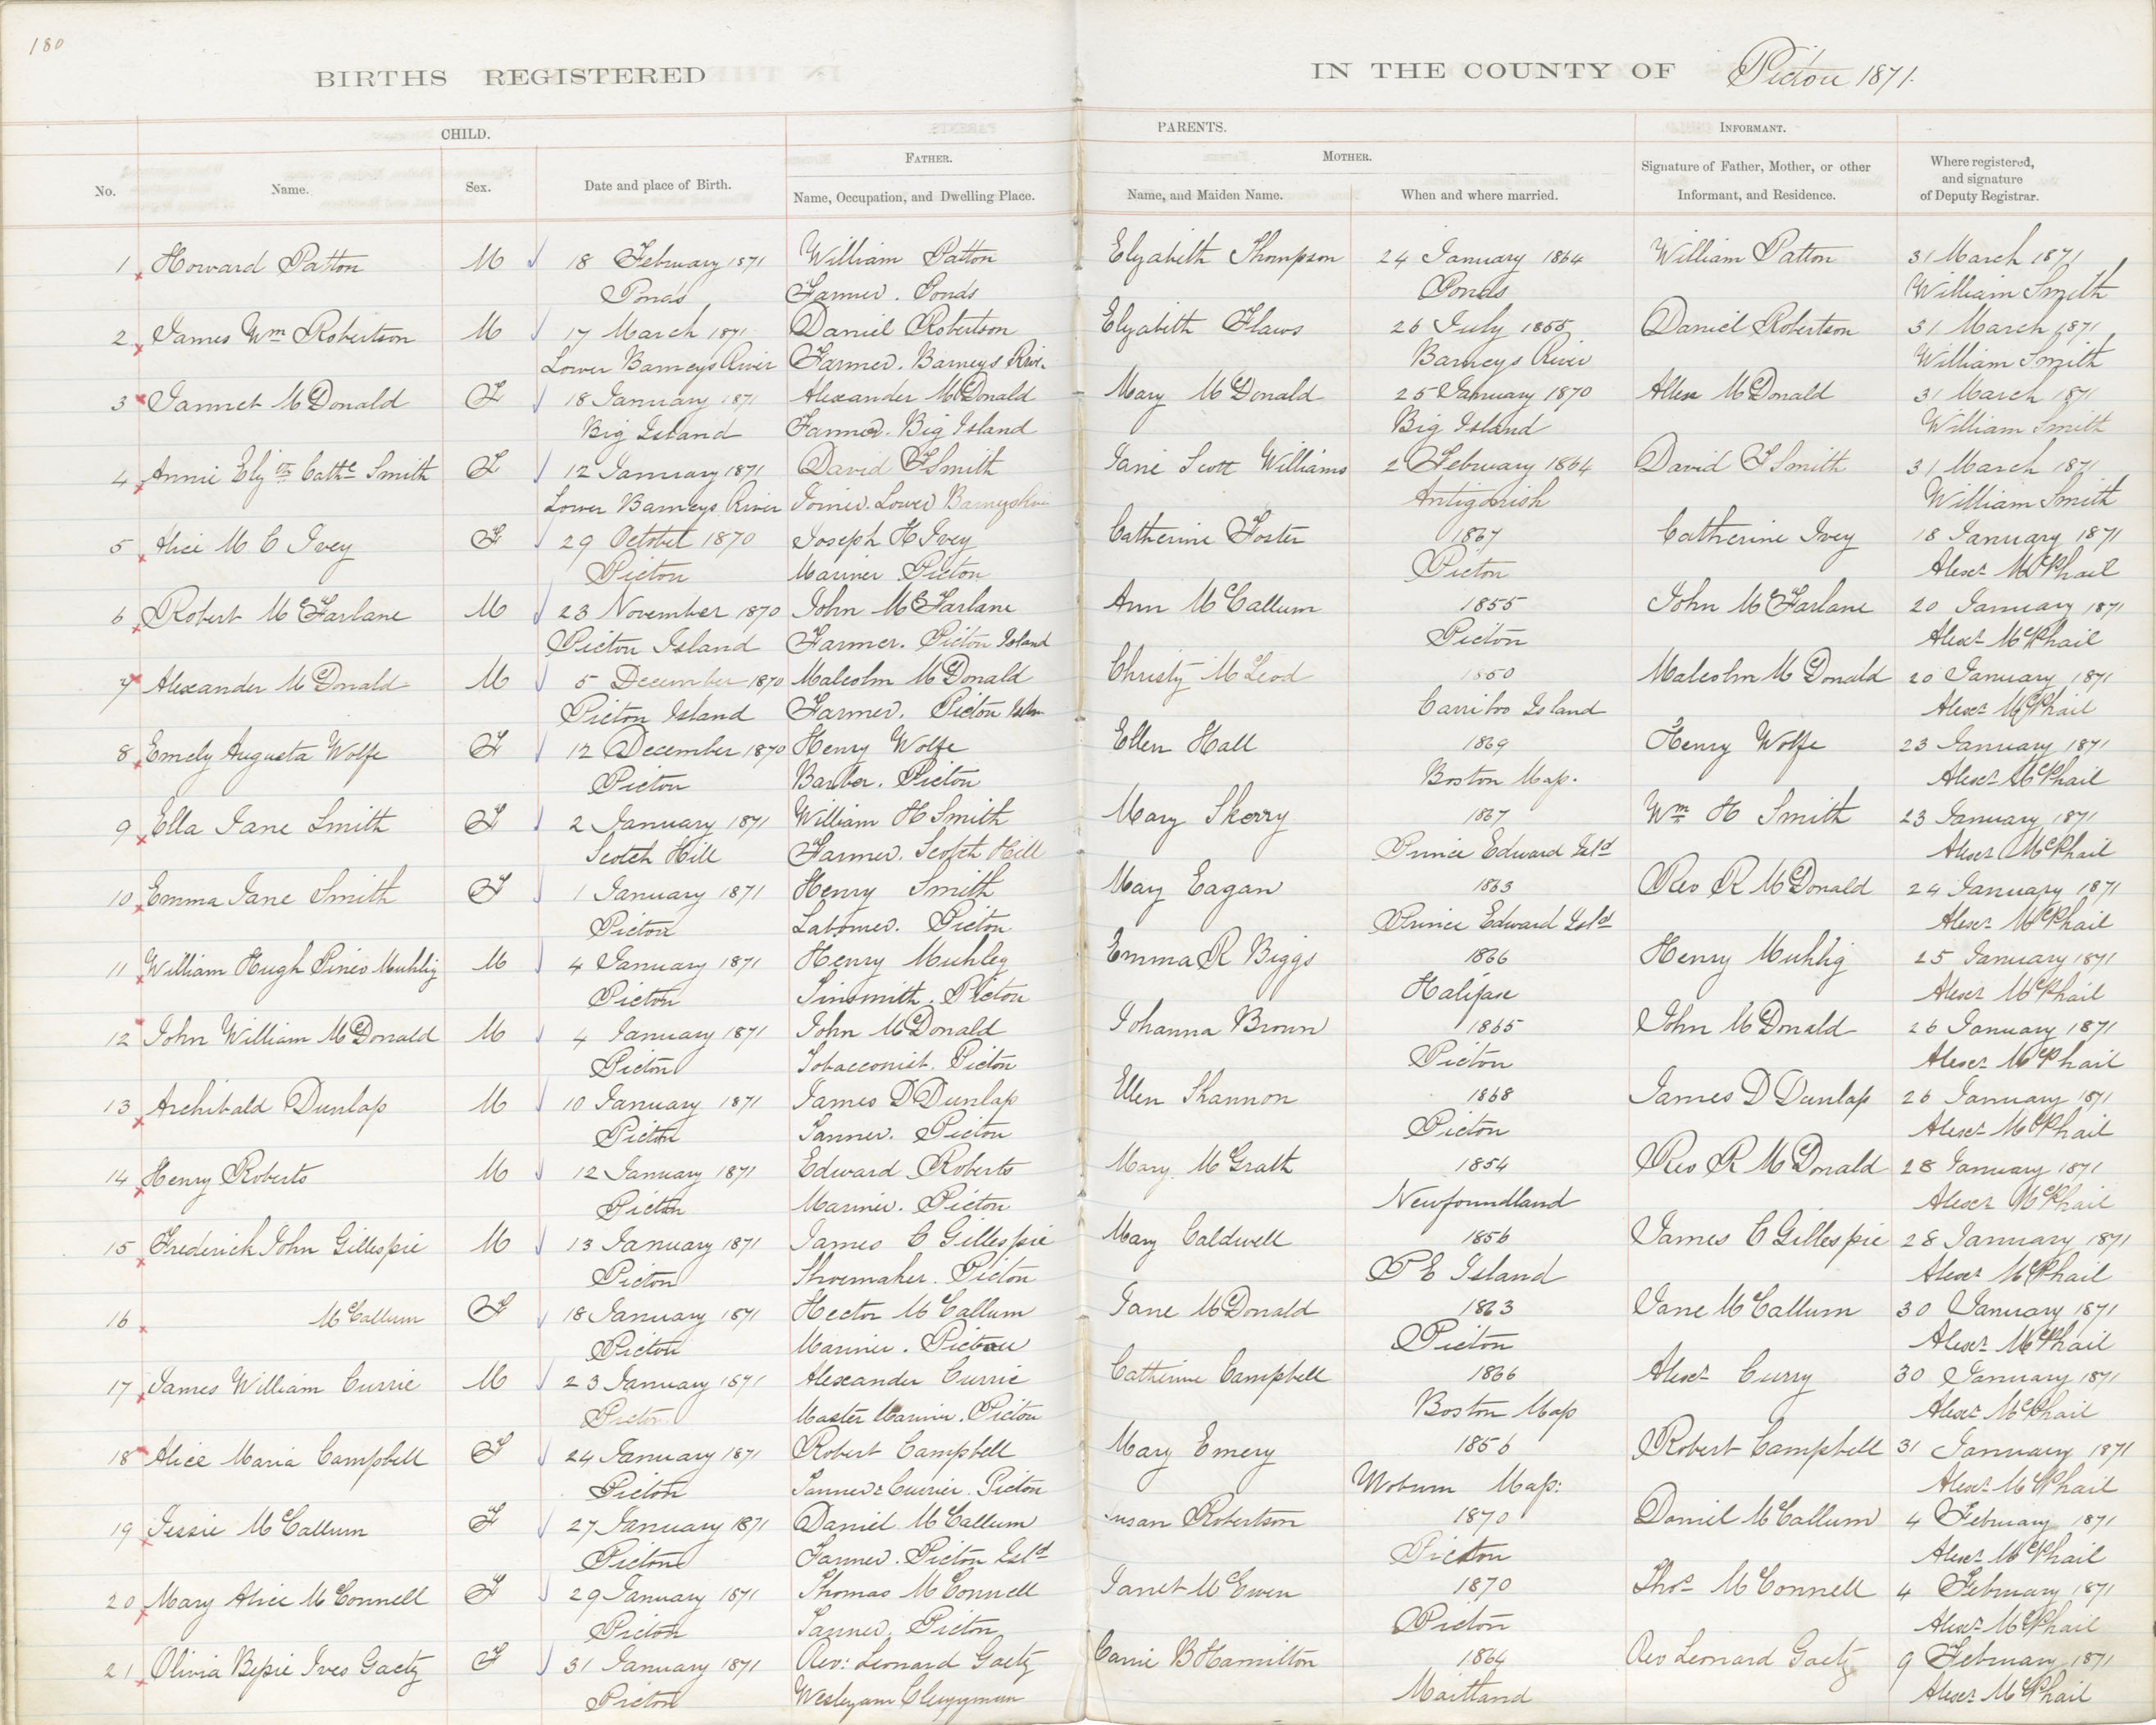 180
BIRTHS REGISTERED IN THE COUNTY OF Pictou 1871.
CHILD. PARENTS. INFORMANT.
FATHER. MOTHER.
No. Name. Sex. Date and place of Birth. Name, Occupation, and Dwelling Place. Name, and Maiden Name. When and where married. Signature of Father, Mother, or other Informant, and Residence. Where registered, and signature of Deputy Registrar.
1 Howard Patton M 18 February 1871 William Patton Elizabeth Thompson 24 January 1864 William Patton 31 March 1871
Ponds Farmer. Ponds Ponds William Smith
2 James Wm Robertson M 17 March 1871 Daniel Robertson Elizabeth Flaws 26 July 1855 Daniel Robertson 31 March 1871
Lower Barneys River Farmer. Barneys River Barneys River William Smith
3 Jannet McDonald F 18 January 1871 Alexander McDonald Mary McDonald 25 January 1870 Alexr McDonald 31 March 1871
Big Island Farmer. Big Island Big Island William Smith
4 Annie Elizth Cathe Smith F 12 January 1871 David F Smith Jane Scott Williams 2 February 1864 David F Smith 31 March 1871
Lower Barneys River Joiner. Lower Barneys River Antigonish William Smith
5 Alice M C Ivey F 29 October 1870 Joseph H Ivey Catherine Foster 1867 Catherine Ivey 18 January 1871
Pictou Mariner Pictou Pictou Alexr McPhail
6 Robert McFarlane M 23 November 1870 John McFarlane Ann McCallum 1855 John McFarlane 20 January 1871
Pictou Island Farmer. Pictou Island Pictou Alexr McPhail
7 Alexander McDonald M 5 December 1870 Malcolm McDonald Christy McLeod 1850 Malcolm McDonald 20 January 1871
Pictou Island Farmer. Pictou Islan Carriboo Island Alexr McPhail
8 Emely Augusta Wolfe F 12 December 1870 Henry Wolfe Ellen Hall 1869 Henry Wolfe 23 January 1871
Pictou Barber. Pictou Boston Mass. Alexr McPhail
9 Ella Jane Smith F 2 January 1871 William H Smith Mary Skerry 1867 Wm H Smith 23 January 1871
Scotch Hill Farmer. Scotch Hill Prince Edward Isld Alexr McPhail
10 Emma Jane Smith F 1 January 1871 Henry Smith Mary Eagan 1863 Rev R McDonald 24 January 1871
Pictou Labourer. Pictou Prince Edward Isld Alexr McPhail
11 William Hugh Pineo Muhlig M 4 January 1871 Henry Muhleg Emma R Biggs 1866 Henry Muhlig 25 January 1871
Pictou Tinsmith. Pictou Halifax Alexr McPhail
12 John William McDonald M 4 January 1871 John McDonald Johanna Brown 1865 John McDonald 26 January 1871
Pictou Tobacconist. Pictou Pictou Alexr McPhail
13 Archibald Dunlap M 10 January 1871 James D Dunlap Ellen Shannon 1868 James D Dunlap 26 January 1871
Pictou Tanner. Pictou Pictou Alexr McPhail
14 Henry Roberts M 12 January 1871 Edward Roberts Mary McGrath 1854 Rev R McDonald 28 January 1871
Pictou Mariner. Pictou Newfoundland Alexr McPhail
15 Frederick John Gillespie M 13 January 1871 James C Gillespie Mary Caldwell 1856 James C Gillespie 28 January 1871
Pictou Shoemaker. Pictou P E Island Alexr McPhail
16 McCallum F 18 January 1871 Hector McCallum Jane McDonald 1863 Jane McCallum 30 January 1871
Pictou Mariner. Pictou Pictou Alexr McPhail
17 James William Currie M 23 January 1871 Alexander Currie Catherine Campbell 1866 Alexr Curry 30 January 1871
Pictou Master Mariner. Pictou Boston Mass Alexr McPhail
18 Alice Maria Campbell F 24 January 1871 Robert Campbell Mary Emery 1856 Robert Campbell 31 January 1871
Pictou Tanner & Currier. Pictou Woburn Mass: Alexr McPhail
19 Jessie McCallum F 27 January 1871 Daniel McCallum Susan Robertson 1870 Daniel McCallum 4 February 1871
Pictou Farmer. Pictou Isld Pictou Alexr McPhail
20 Mary Alice McConnell F 29 January 1871 Thomas McConnell Janet McEwen 1870 Thos McConnell 4 February 1871
Pictou Tanner. Pictou Pictou Alexr McPhail
21 Olivia Bessie Ives Gaetz F 31 January 1871 Rev: Leonard Gaetz Carrie B Hamilton 1864 Rev Leonard Gaetz 9 February 1871
Pictou Wesleyan Clergyman Maitland Alexr McPhail